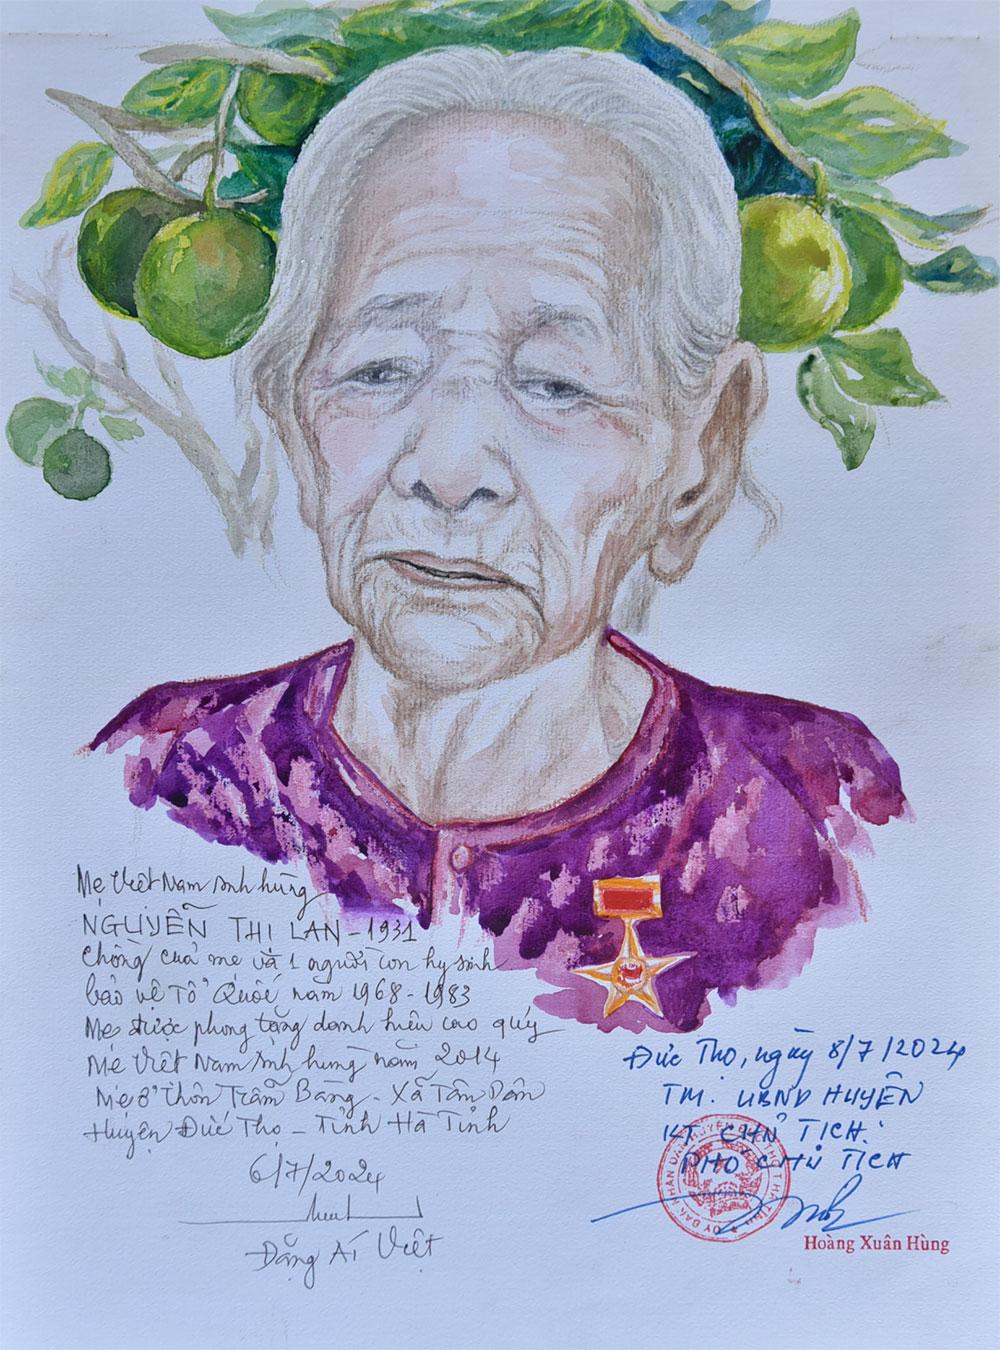 Mẹ Việt Nam anh hùng
NGUYỄN THỊ LAN - 1931
Chồng của mẹ và 1 người con hy sinh
bảo vệ Tổ Quốc năm 1968 - 1983
Mẹ được phong tặng danh hiệu cao quý
Mẹ Việt Nam Anh hùng năm 2014
Mẹ ở thôn Trầm Bàng - Xã Tân Dân
Huyện Đức Thọ - Tỉnh Hà Tĩnh
6/7/2024
Đặng Ái Việt
Đức Thọ, ngày 8/7/2024
TM. UBND HUYỆN
KT. CHỦ TỊCH
PHÓ CHỦ TỊCH
Hoàng Xuân Hùng